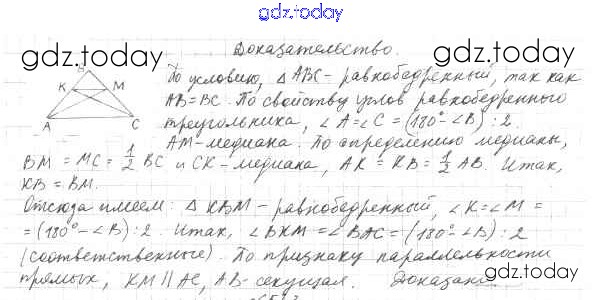 gdz.today
Доказательство.
gdz.today gdz.today
B
K M
A C
По условию, △ABC - равнобедренный, так как
AB=BC. По свойству углов равнобедренного
треугольника, ∠A=∠C = (180°-∠B):2.
AM-медиана. По определению медианы,
BM = MC = 1/2 BC и CK-медиана, AK = KB = 1/2 AB. Итак,
KB = BM.
Отсюда имеем: △KBM - равнобедренный, ∠K=∠M =
=(180°-∠B):2. Итак, ∠BKM = ∠BAC = (180°-∠B):2
(соответственные). По признаку параллельности
прямых, KM || AC, AB-секущая. Доказано.
gdz.today